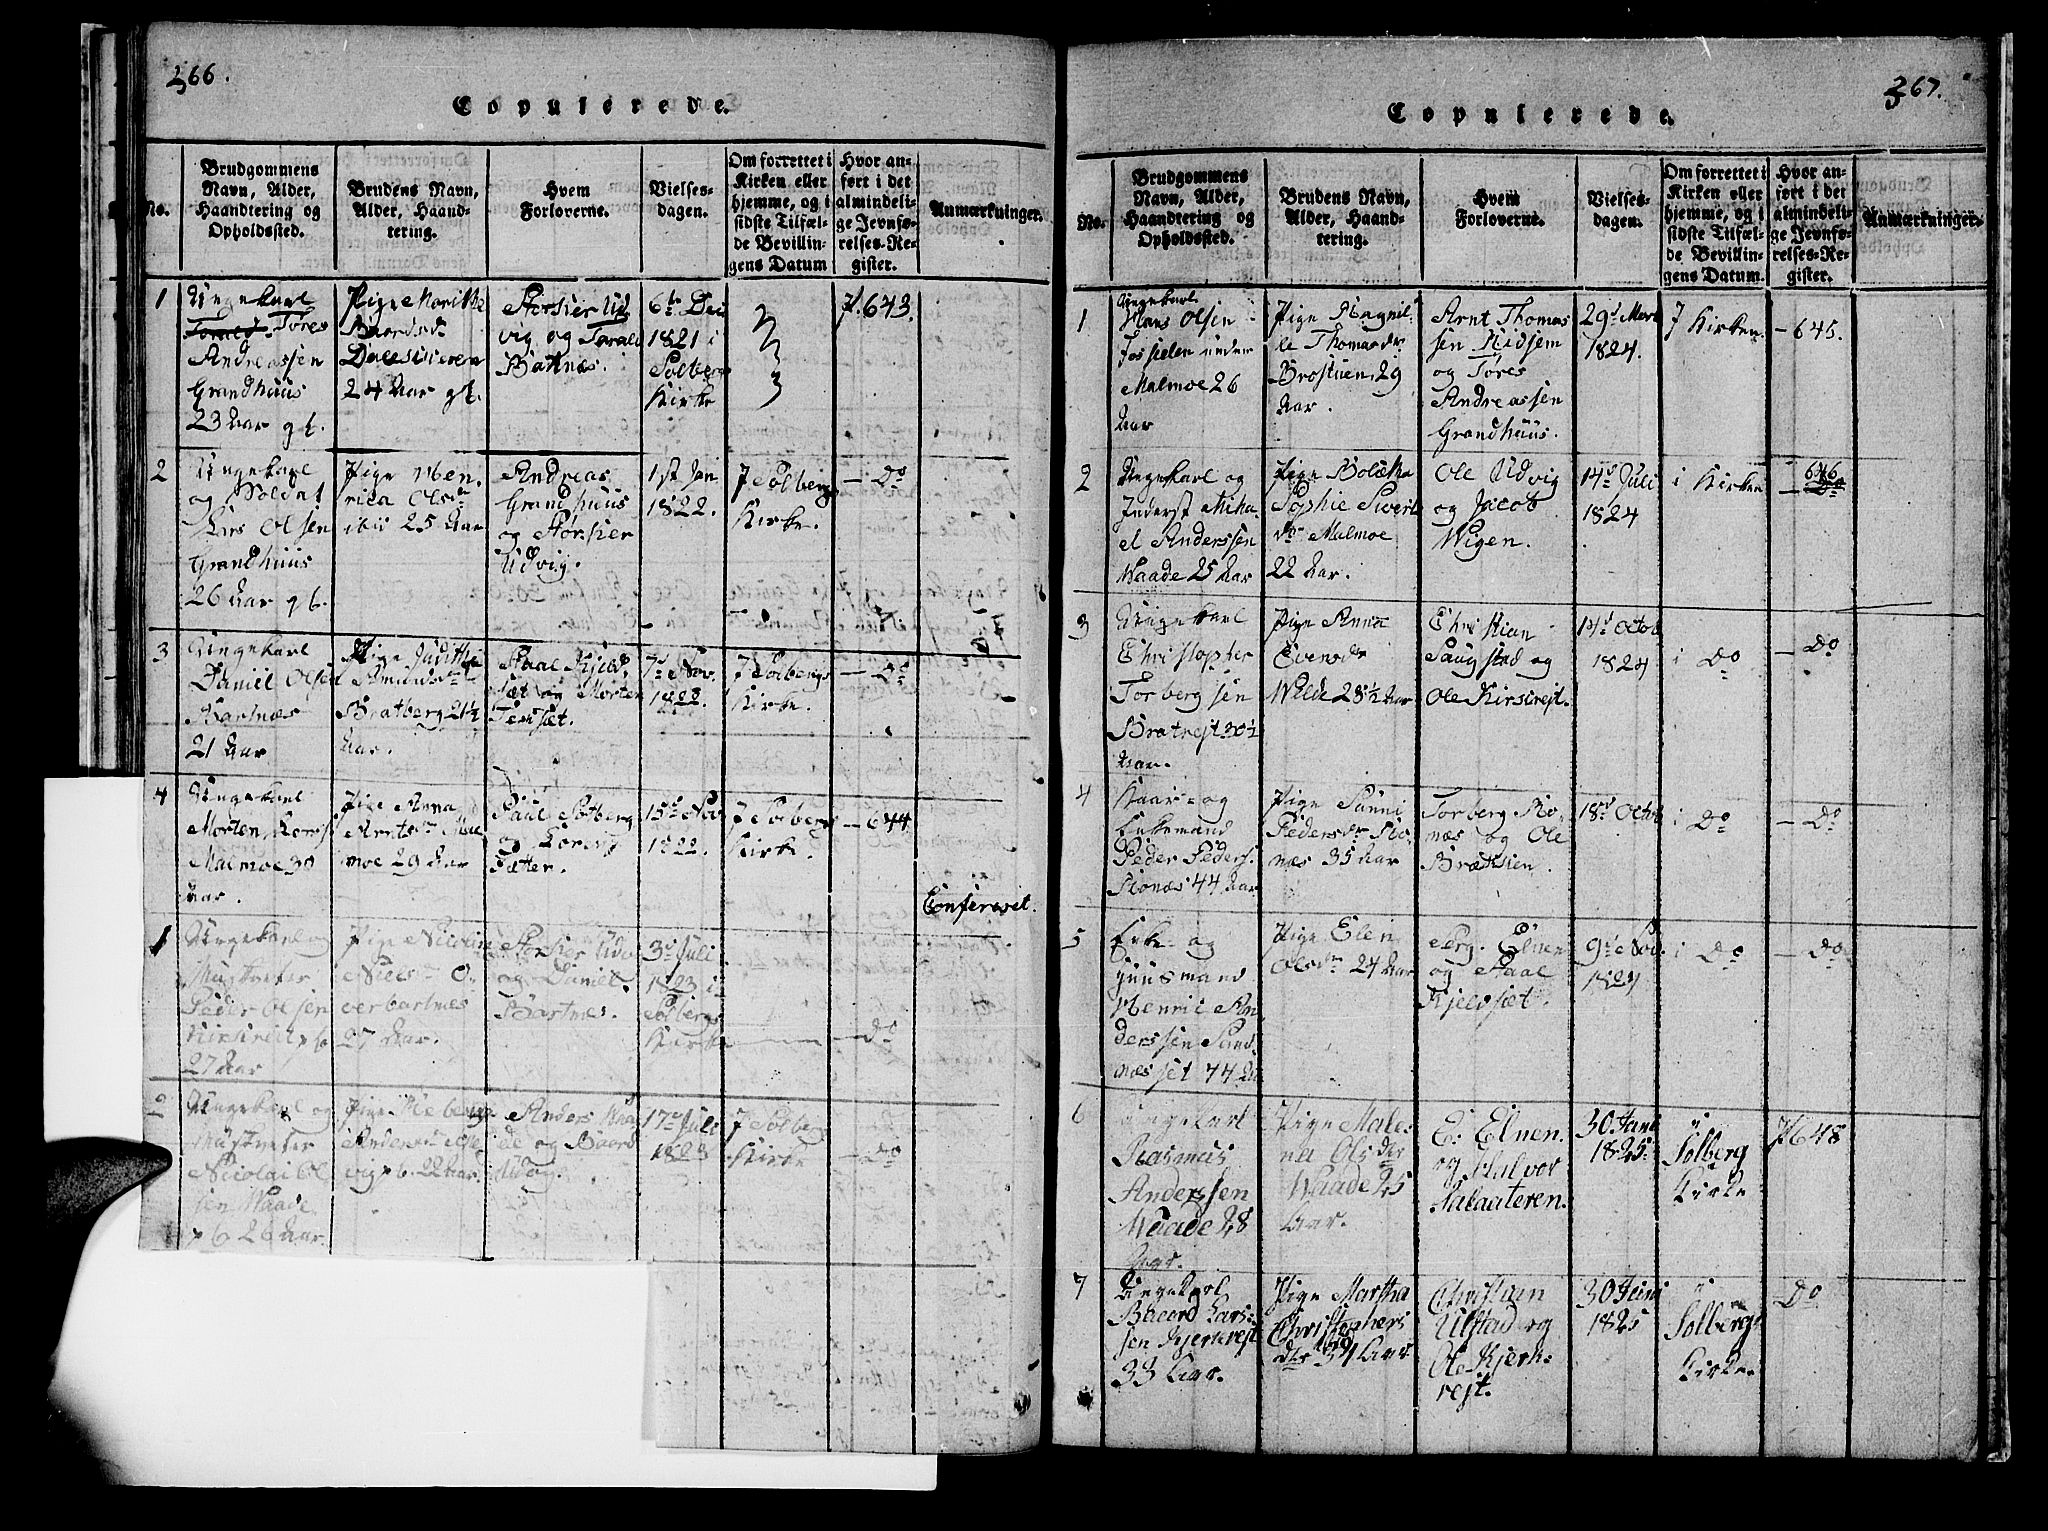 366.
Copulerede.
No.
Brudgommens
Navn, Alder,
Haandtering og
Opholdssted.
Brudens Navn,
Alder, Haand-
tering.
Hvem
Forloverne.
Vielses-
dagen.
Om forrettet i
Kirken eller
hjemme, og i
sidste Tilfæl-
de Bevillin-
gens Datum
Hvor an-
ført i det
almindeli-
ge Jevnfø-
relses-Re-
gister.
Anmærkninger.
1
Ungekarl
Tores
Andreassen
Grandhuus
23 Aar gl.
Pige Marithe
Baardsdr
24 Aar gl.
og Tarald
Bartnæs.
6te Dec
1821 i
Solberg
Kirke
P. 643.
2
Ungekarl
og Soldat
Lars Olsen
Grandhuus
26 Aar gl.
Pige Hen-
rica Olsdr
ibid 25 Aar
Andreas
Grandhuus
og Torsier
Udvig.
1st Jan
1822.
I Solbergs
Kirke.
— Do
3
Ungekarl
Daniel Olsen
Bartnæs
21 Aar
Pige Judithe
Amundsdr
Bratberg 21½
Aar.
Paal Kjeld-
sæt og Morten
7d Nov.
1822.
I Solbergs
Kirke.
— Do
4
Ungekarl
Morten
Malmoe 30
Aar.
Pige Anna
Arntsdr Mal-
moe 29 Aar
Paul Solberg
og Lorents
Sætter.
15d Nov
1822.
I Solbergs
Kirke.
— 644
Confereret.
1
Ungekarl og
Peder Olsen
27 Aar
Pige Nicolin
Nielsdr O-
verbartnæs
27 Aar.
Torsier Udv
og Daniel
Bartnæs.
3d Juli
1823 i
Solbergs
Kirke
— Do
2
Ungekarl og
Nicolai Ol-
sen Waade
26 Aar.
Pige Rebecca
22 Aar.
Anders Waa-
de og Baard
Udvig.
17d Juli
1823
I Solberg
Kirke
— Do
367.
Copulerede.
No.
Brudgommens
Navn, Alder,
Haandtering og
Opholdssted.
Brudens Navn,
Alder, Haand-
tering.
Hvem
Forloverne.
Vielses-
dagen.
Om forrettet i
Kirken eller
hjemme, og i
sidste Tilfæl-
de Bevillin-
gens Datum.
Hvor an-
ført i det
almindeli-
ge Jevnfø-
relses-Re-
gister.
Anmærkninger.
1
Ungekarl
Hans Olsen
Fosselen under
Malmoe 26
Aar
Pige Magnil-
de Thomasdr
Brostuen, 29
Aar.
Arnt Thomas
sen Kidsem
og Tores
Andreassen
Grandhuus.
29d Marts
1824.
I Kirken
— 645.
2
Ungekarl og
Inderst Micha-
el Anderssen
Waade 25 Aar
Pige Boletha
Sophie Sivert
dr Malmoe
22 Aar.
Ole Udvig
og Jacob
Wigen.
14d Juli
1824
i Kirken
646
3
Ungekarl
Christopher
Torbergsen
Bratrejt 30½
Aar.
Pige Anna
Evensdr
Welde 28½ Aar
Christian
Saugstad og
Ole Kirkrejt.
14d Octob
1824
i Do
— Do
4
Kaar- og
Enkemand
Peder Peders.
44 Aar
Pige Sunni
Pedersdr
35 Aar
Torberg
og Ole
18d Octob
i Do
— Do
5
Enke- og
Huusmand
Henric An-
derssen Sand-
næs set 44 Aar
Pige Elen
Olsdr 24 Aar
Serg. Elnen
og Paal
Kjeldsæt.
9d Nov.
1824
i Do
— Do
6
Ungekarl
Rasmus
Anderssen
Waade 28
Aar.
Pige Male-
na Olsder
Waade 25
Aar.
E. Elnen
og Halvor
Salaateren.
30 Juni
1825
i
Solberg
Kirke
P 648
7
Ungekarl
Baard Lars-
sen Kjerkrejt
33 Aar.
Pige Martha
Christophers
dtr 34 Aar
Christian
Ulstad og
Ole Kjerk-
rejt.
30 Juni
1825
i
Solbergs
Kirke.
— Do